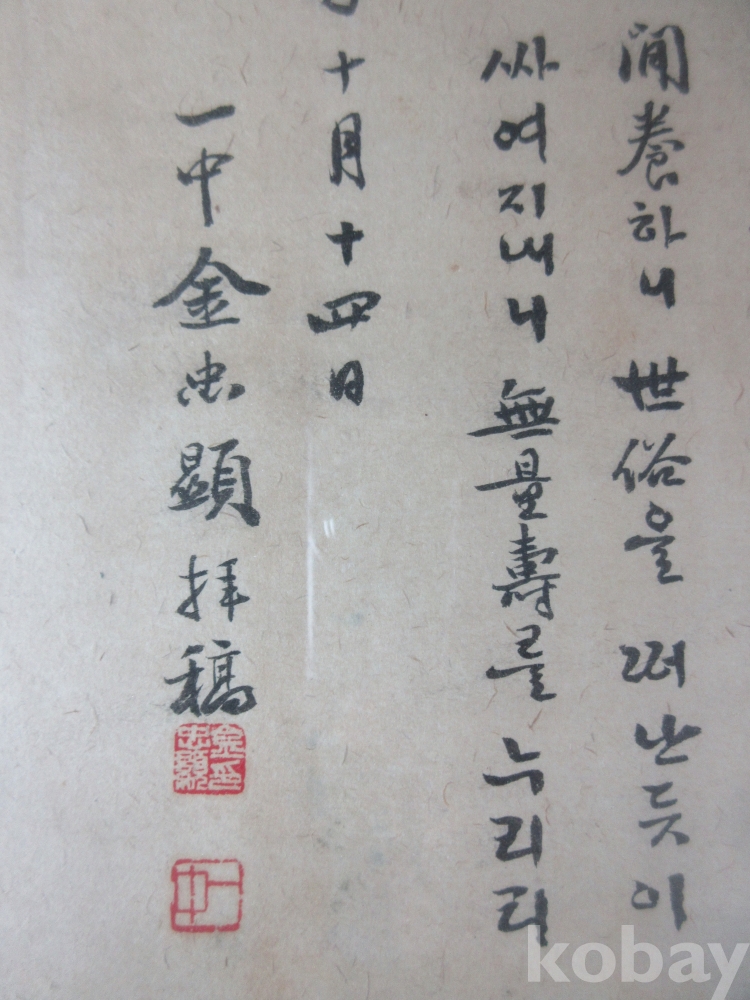 閒養하니 世俗을 떠난듯이
싸여지내니 無量壽를 누리리
十月十四日
一中 金忠顯 拝稿
金印忠顯
一中
kobay